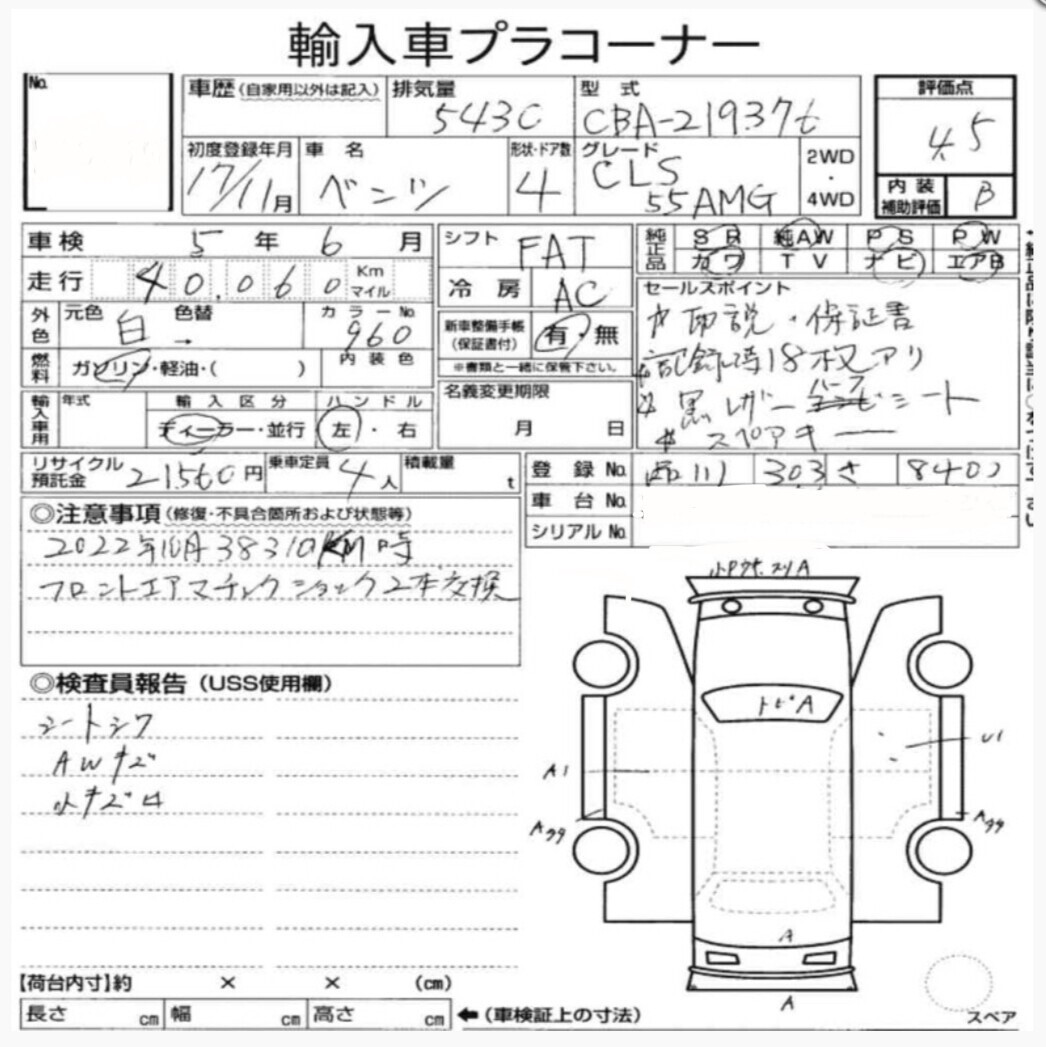 輸入車プラコーナー
No.
車歴 (自家用以外は記入) 排気量 型式 評価点
5430 CBA-219376 4.5
初度登録年月 車名 形状・ドア数 グレード 2WD・4WD
17/11月 ベンツ 4 CLS 55AMG
内装補助評価 B
車検 5年 6月 シフト FAT 純正品 SR 純AW PS PW
カワ TV ナビ エアB
走行 40.060 Km マイル 冷房 AC
セールスポイント
外色 元色 白 色替 → カラーNo. 960 新車整備手帳 (保証書付) 有・無
# 取説・保証書
燃料 ガソリン・軽油・( ) 内装色 ※書類と一緒に保管下さい。
# 記録時18枚アリ
輸入車用 年式 輸入区分 ハンドル 名義変更期限
ディーラー・並行 左・右 月 日
# 黒レザーハーフシート
# スペアキー
リサイクル預託金 21560円 乗車定員 4人 積載量 t 登録No. 品川 303 さ 8402
車台No.
シリアルNo.
◎注意事項 (修復・不具合箇所および状態等)
2022年10月38310KM時
フロントエアマチックショック2本交換
◎検査員報告 (USS使用欄)
シートシワ
AWキズ
小キズ凹
トビA
A1
U1
Aｻｻ
Aｻｻ
A
A
【荷台内寸】約 × × (cm)
長さ cm 幅 cm 高さ cm ← (車検証上の寸法)
スペア